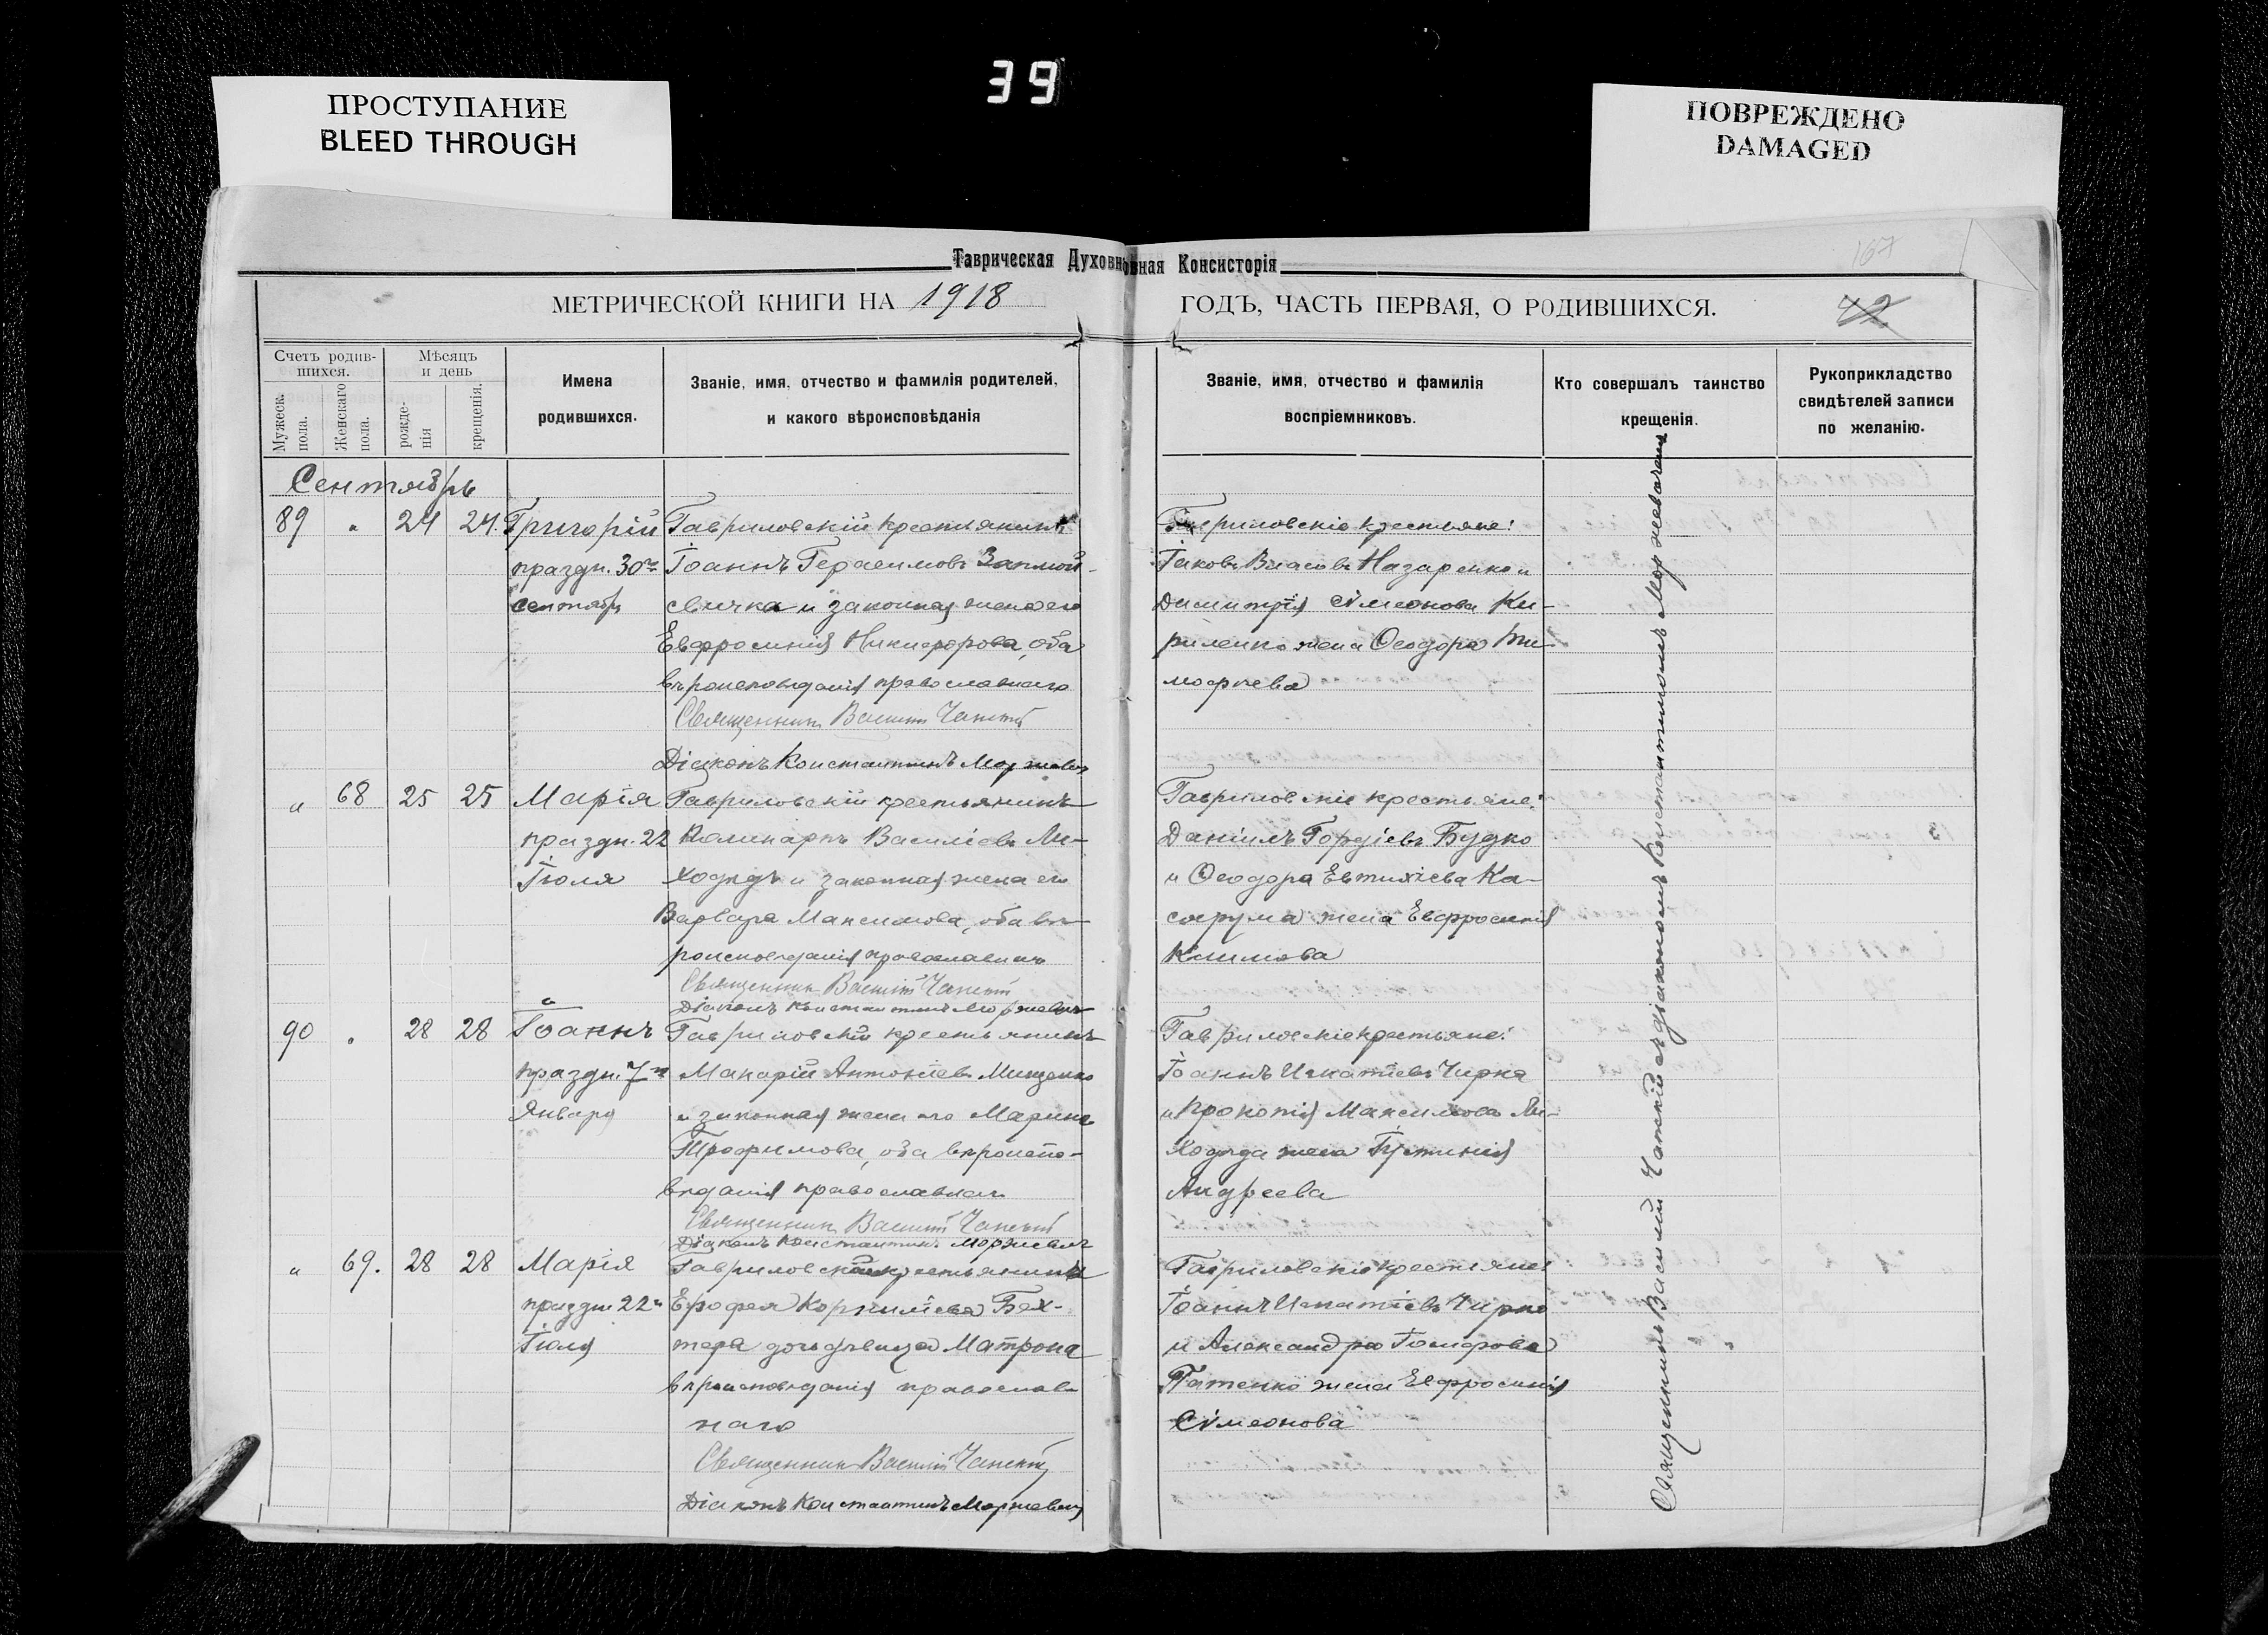 39
ПРОСТУПАНИЕ
BLEED THROUGH
ПОВРЕЖДЕНО
DAMAGED
Таврическая Духовная Консисторія
167
МЕТРИЧЕСКОЙ КНИГИ НА 1918
ГОДЪ, ЧАСТЬ ПЕРВАЯ, О РОДИВШИХСЯ.
42
Счетъ родив-
шихся.
Мужеск. пола.
Женскаго пола.
Мѣсяцъ
и день
рожде-
нія
крещенія.
Имена
родившихся.
Званіе, имя, отчество и фамилія родителей,
и какого вѣроисповѣданія
Званіе, имя, отчество и фамилія
воспріемниковъ.
Кто совершалъ таинство
крещенія.
Рукоприкладство
свидѣтелей записи
по желанію.
Сентябрь
89 " 24 24. Григорій
праздн. 30го
сентября
Гавриловскій крестьянинъ
Іоаннъ Герасимовъ
свичка и законная жена его
Евфросинія Никифорова, оба
вѣроисповѣданія православнаго
Священникъ Василій Чапскій
Діаконъ Константинъ Моржевичъ
Гавриловскіе крестьяне:
Іаковъ Власовъ Назаренко и
Димитрія Сѵмеонова Ки-
риленко жена Ѳеодора Ти-
мофѣева
" 68 25 25 Марія
праздн. 22
Іюля
Гавриловскій крестьянинъ
Поликарпъ Василіевъ Ли-
ходѣдъ и законная жена его
Варвара Максимова, оба вѣ-
роисповѣданія православнаго
Священникъ Василій Чапскій
Діаконъ Константинъ Моржевичъ
Гавриловскіе крестьяне:
Даніилъ Гордіевъ Будко
и Ѳеодора Евтихіева Ка-
жена Евфросинія
Климова
90 " 28 28 Іоаннъ
праздн. 7го
Января
Гавриловскій крестьянинъ
Макарій Антоніевъ Мищенко
и законная жена его Марина
Трофимова, оба вѣроиспо-
вѣданія православнаго
Священникъ Василій Чапскій
Діаконъ Константинъ Моржевичъ
Гавриловскіе крестьяне:
Іоаннъ Игнатіевъ Чирка
и Прокопія Максимова Ли-
ходѣда жена Іустинія
Андреева
" 69. 28 28 Марія
праздн 22го
Іюля
Гавриловскаго крестьянина
Ерофея Корниліева Бех-
тера дочь дѣвица Матрона
вѣроисповѣданія православ-
наго
Священникъ Василій Чапскій
Діаконъ Константинъ Моржевичъ
Гавриловскіе крестьяне:
Іоаннъ Игнатіевъ Чирка
и Александра
жена Евфросинія
Сѵмеонова
Священникъ Василій Чапскій съ діакономъ Константиномъ Моржевичемъ